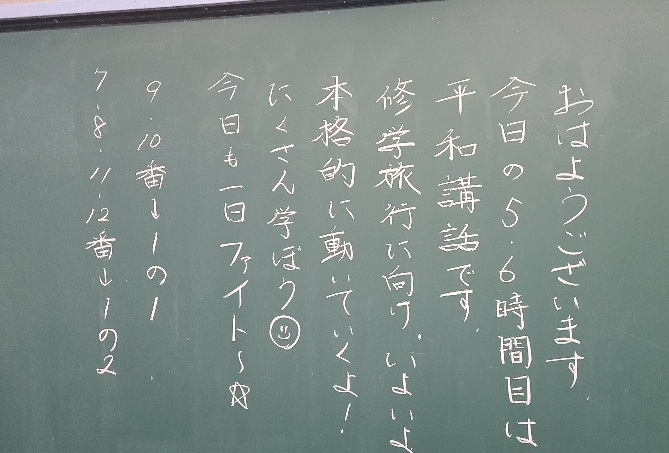 おはようございます。
今日の5.6時間目は
平和講話です。
修学旅行に向け、いよいよ
本格的に動いていくよ!
にくさん学ぼう☺
今日も一日ファイト〜☆
9.10番↓1の1
7.8.11.12番↓1の2